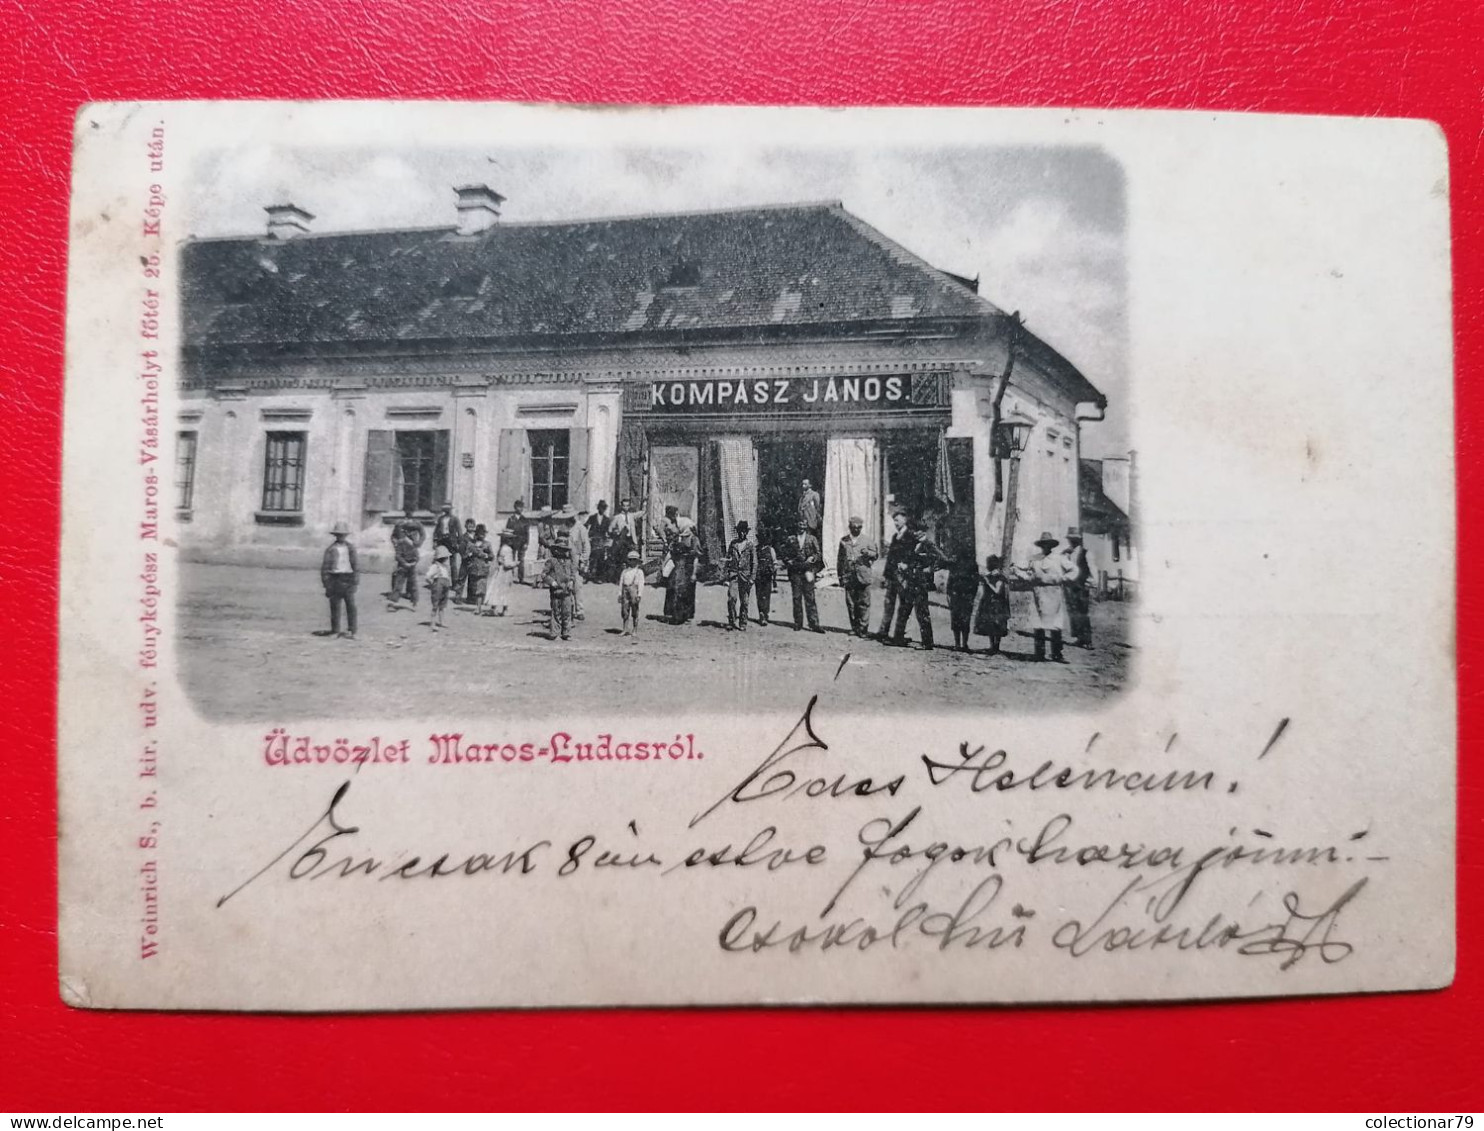 Weinrich S., b. kir. udv. fényképész Maros-Vásárhelyt főtér 25. Képe után.
KOMPÁSZ JÁNOS.
Üdvözlet Maros-Ludasról.
Édes Helénám!
Én csak 8án estve fogok haza jönni.-
Csókol hű László
colectionar79
delcampe.net